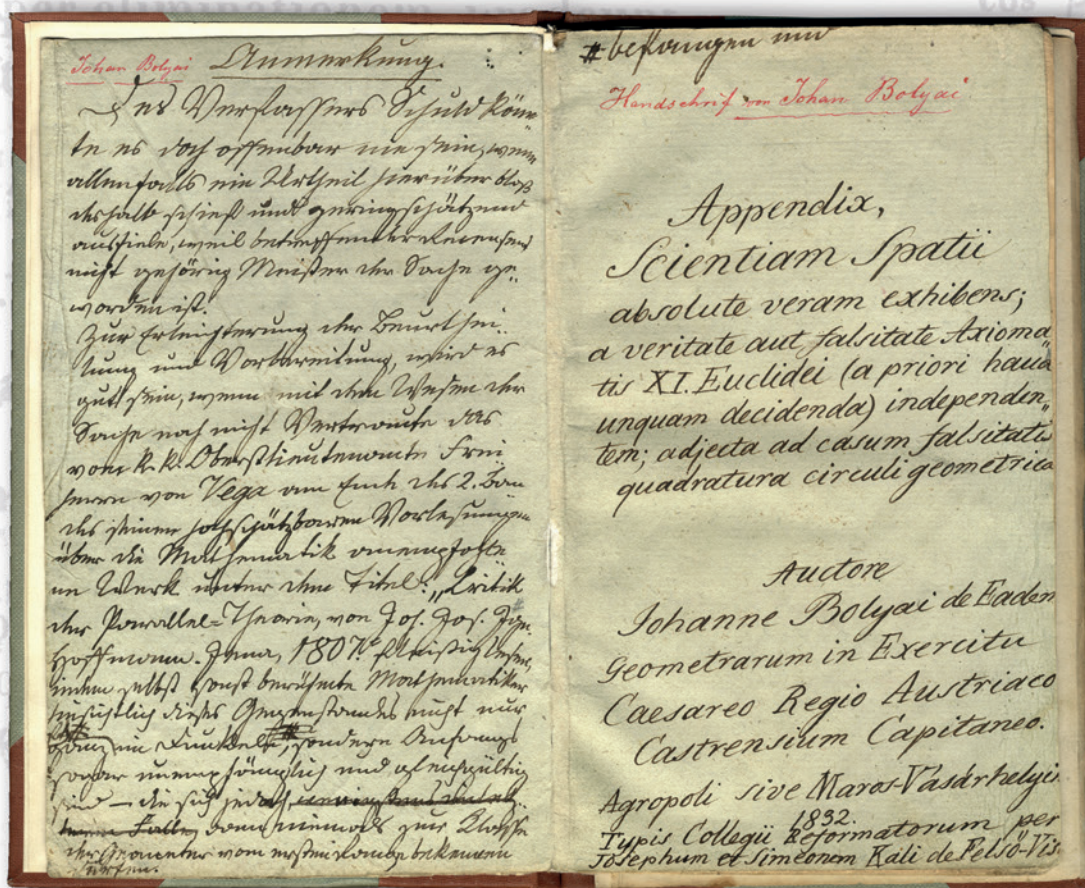 Johan Bolyai
Anmerkung.
Des Verfassers Schuld könn
te es doch offenbar nie sein, wenn
allenfalls ein Urtheil hierüber bloß
deshalb schief und geringschätzend
ausfiele, weil betreffender Recensent
nicht gehörig Meister der Sache ge-
worden ist.
Zur Erleichterung der Beurthei-
lung und Vorbereitung, wird es
gut sein, wenn mit dem Wesen der
Sache noch nicht Vertraute das
vom k. k. Oberstlieutenante Frei
herrn von Vega am Ende des 2. Ban
des seiner hochschätzbaren Vorlesungen
über die Mathematik anempfohle
ne Werk unter dem Titel: „Critik
der Parallel-Theorie, von Joh. Jos. Ign.
Hoffmann. Jena, 1807." fleissig lesen,
indem selbst sonst berühmte Mathematiker
hinsichtlich dieses Gegenstandes nicht nur
ganz im Dunkeln, sondern Anfangs
sogar unempfänglich und gleichgültig
sind — die sich jedoch
Falle, dann niemals zur Klasse
der Geometer vom ersten Range bekennen
dürfen.
# befangen und
Handschrif von Johan Bolyai
Appendix,
Scientiam Spatii
absolute veram exhibens;
a veritate aut falsitate Axioma„
tis XI. Euclidei (a priori haud
unquam decidenda) independen„
tem; adjecta ad casum falsitatis
quadratura circuli geometrica
Auctore
Johanne Bolyai de Eadem
Geometrarum in Exercitu
Caesareo Regio Austriaco
Castrensium Capitaneo.
Agropoli sive Maros-Vásárhelyini
1832.
Typis Collegii Reformatorum per
Josephum et Simeonem Kali de Felsö-Vis